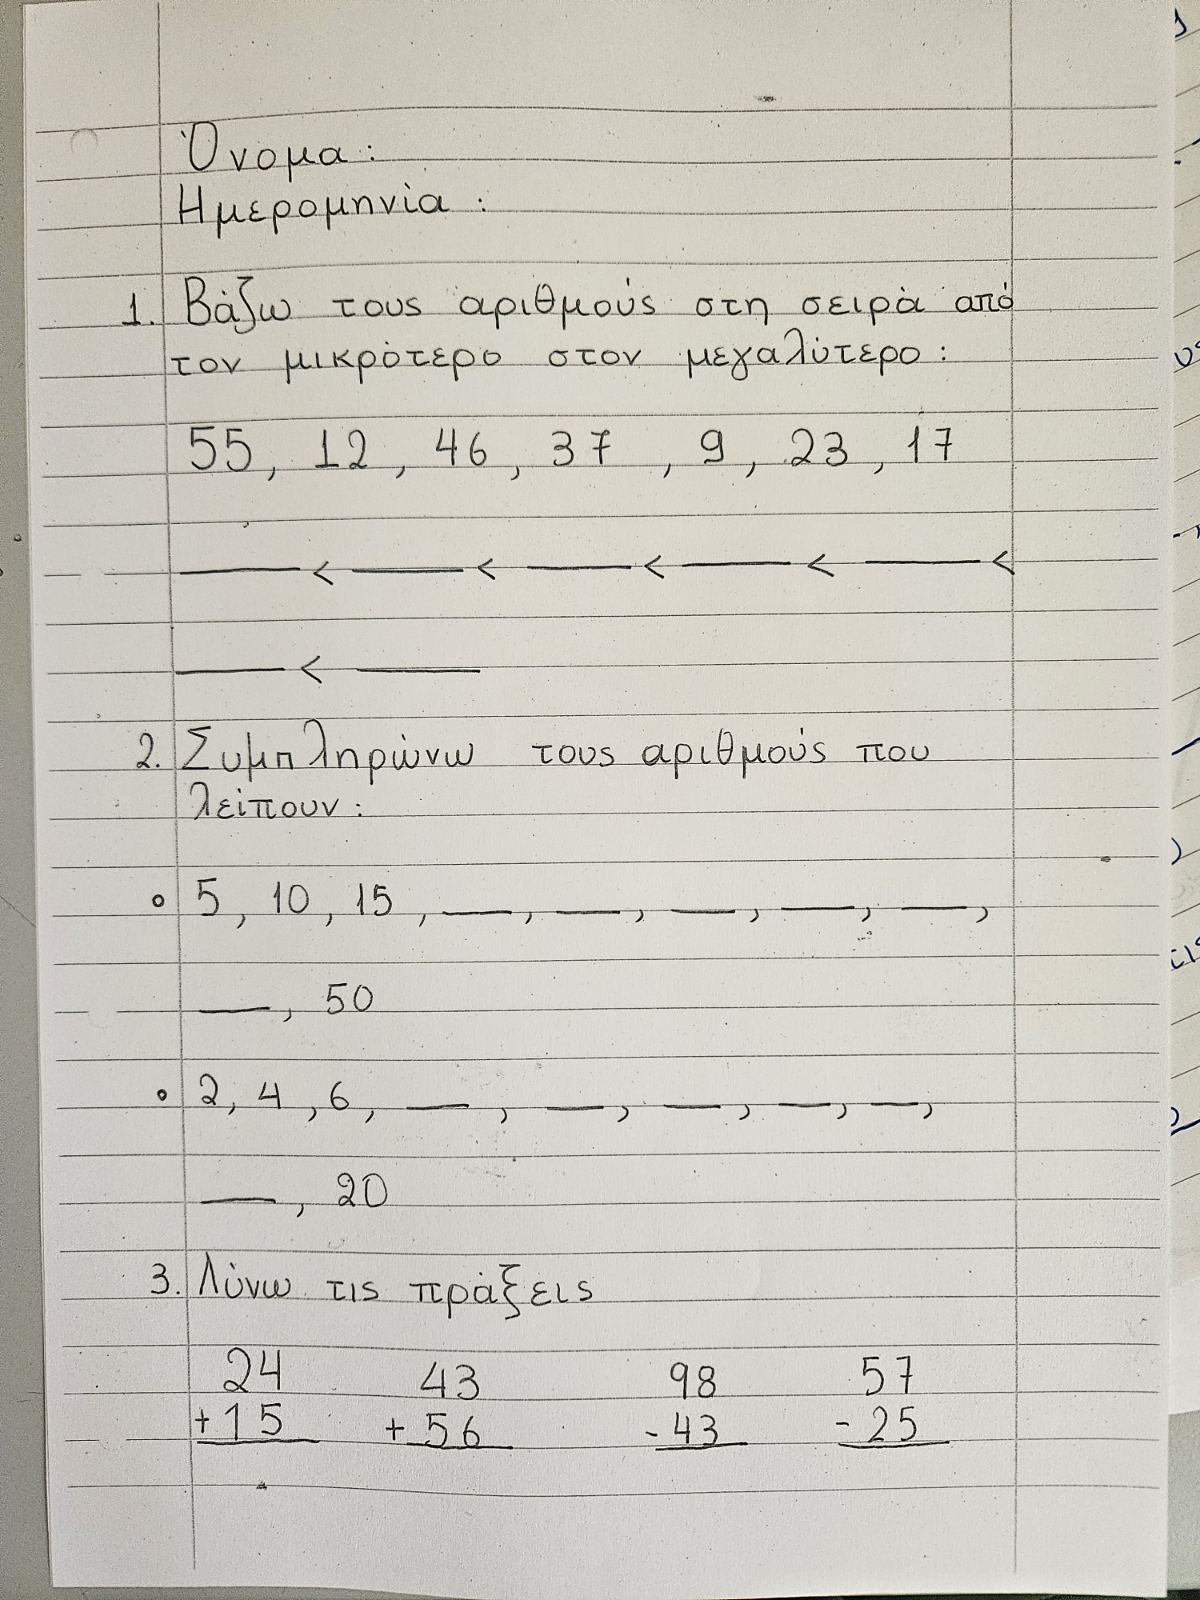 Όνομα :
Ημερομηνία :
1. Βάζω τους αριθμούς στη σειρά από
τον μικρότερο στον μεγαλύτερο :
55, 12, 46, 37, 9, 23, 17
___ < ___ < ___ < ___ < ___ <
___ < ___
2. Συμπληρώνω τους αριθμούς που
λείπουν :
5, 10, 15, __, __, __, __, __,
__, 50
2, 4, 6, __, __, __, __, __,
__, 20
3. Λύνω τις πράξεις
24 43 98 57
+15 +56 -43 -25